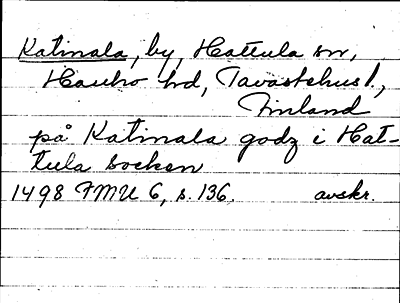 Katinala, by, Hattula sn,
Hauho hd, Tavastehus l.,
Finland
på Katinala godz i Hat-
tula socken
1498 FMU 6, s. 136. avskr.